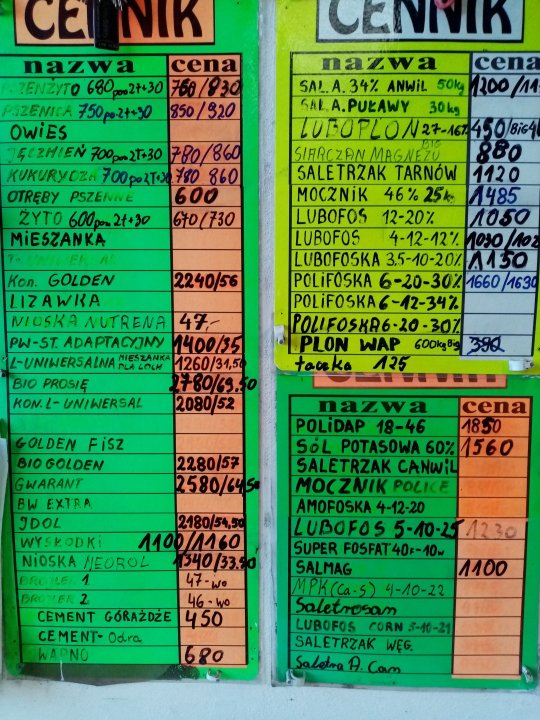 CENNIK
nazwa cena
PSZENŻYTO 680 pow 2t+30 760/830
PSZENICA 750 po 2t+30 850/920
OWIES
JĘCZMIEŃ 700 pow 2t+30 780/860
KUKURYDZA 700 pow 2T+30 780 860
OTRĘBY PSZENNE 600
ŻYTO 600 pow 2t+30 670/730
MIESZANKA
KON. GOLDEN 2240/56
LIZAWKA
NIOSKA NUTRENA 47,-
PW-ST. ADAPTACYJNY 1400/35
L-UNIWERSALNA MIESZANKA DLA LOCH 1260/31,50
BIO PROSIĘ 2780/69.50
KON. L-UNIWERSAL 2080/52
GOLDEN FISZ
BIO GOLDEN 2280/57
GWARANT 2580/64,50
BW EXTRA
IDOL 2180/54,50
WYSŁODKI 1100/1160
NIOSKA 1340/33.50
BROJLER 1 47-wo
BROJLER 2 46-wo
CEMENT GÓRAŻDŻE 450
CEMENT-Odra
WAPNO 680
CENNIK
nazwa cena
SAL.A. 34% ANWIL 50kg 1200/11
SAL.A. PUŁAWY 30kg
LUBOPLON 27-16% 450/BIG
SIARCZAN MAGNEZU BIG 880
SALETRZAK TARNÓW 1120
MOCZNIK 46% 25kg 1485
LUBOFOS 12-20% 1050
LUBOFOS 4-12-12% 1030/102
LUBOFOSKA 3.5-10-20% 1150
POLIFOSKA 6-20-30% 1660/1630
POLIFOSKA 6-12-34%
POLIFOSKA 6-20-30%
PLON WAP 600kg Big 390
taczka 125
CENNIK
nazwa cena
POLIDAP 18-46 1850
SÓL POTASOWA 60% 1560
SALETRZAK CANWIL
MOCZNIK POLICE
AMOFOSKA 4-12-20
LUBOFOS 5-10-25 1230
SUPER FOSFAT 40F-10w
SALMAG 1100
MPK (Ca-S) 4-10-22
Saletrosan
LUBOFOS CORN 3-10-21
SALETRZAK WĘG.
Saletra A. Can